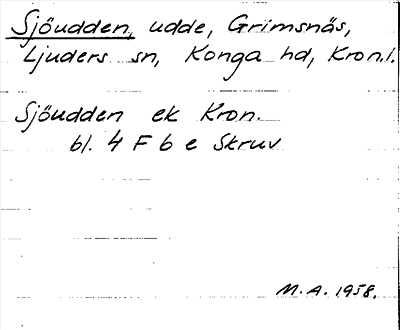 Sjöudden, udde, Grimsnäs,
Ljuders sn, Konga hd, Kron.l.
Sjöudden ek Kron.
bl. 4 F 6 e Skruv
M. A. 1958.